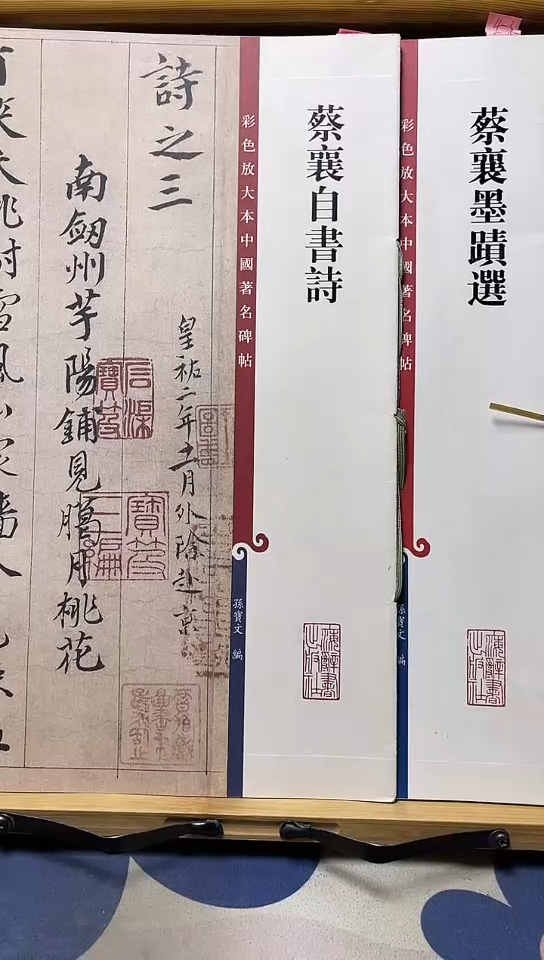 蔡襄墨蹟選
彩色放大本中國著名碑帖
孫寶文 編
海辭書出版社
蔡襄自書詩
彩色放大本中國著名碑帖
孫寶文 編
海辭書出版社
詩之三
皇祐二年十一月外除赴京
南劒州芋陽鋪見臘月桃花